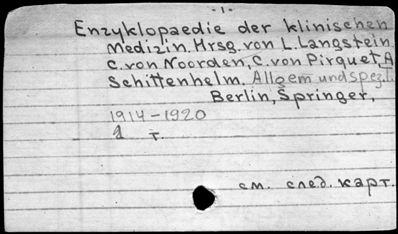 -1-
Enzyklopaedie der klinischen
Medizin. Hrsg. von L. Langstein.
C. von Noorden, C. von Pirquet, A
Schittenhelm. Allgem und spez. T.
Berlin, Springer,
1914-1920
1 т.
см. след. карт.